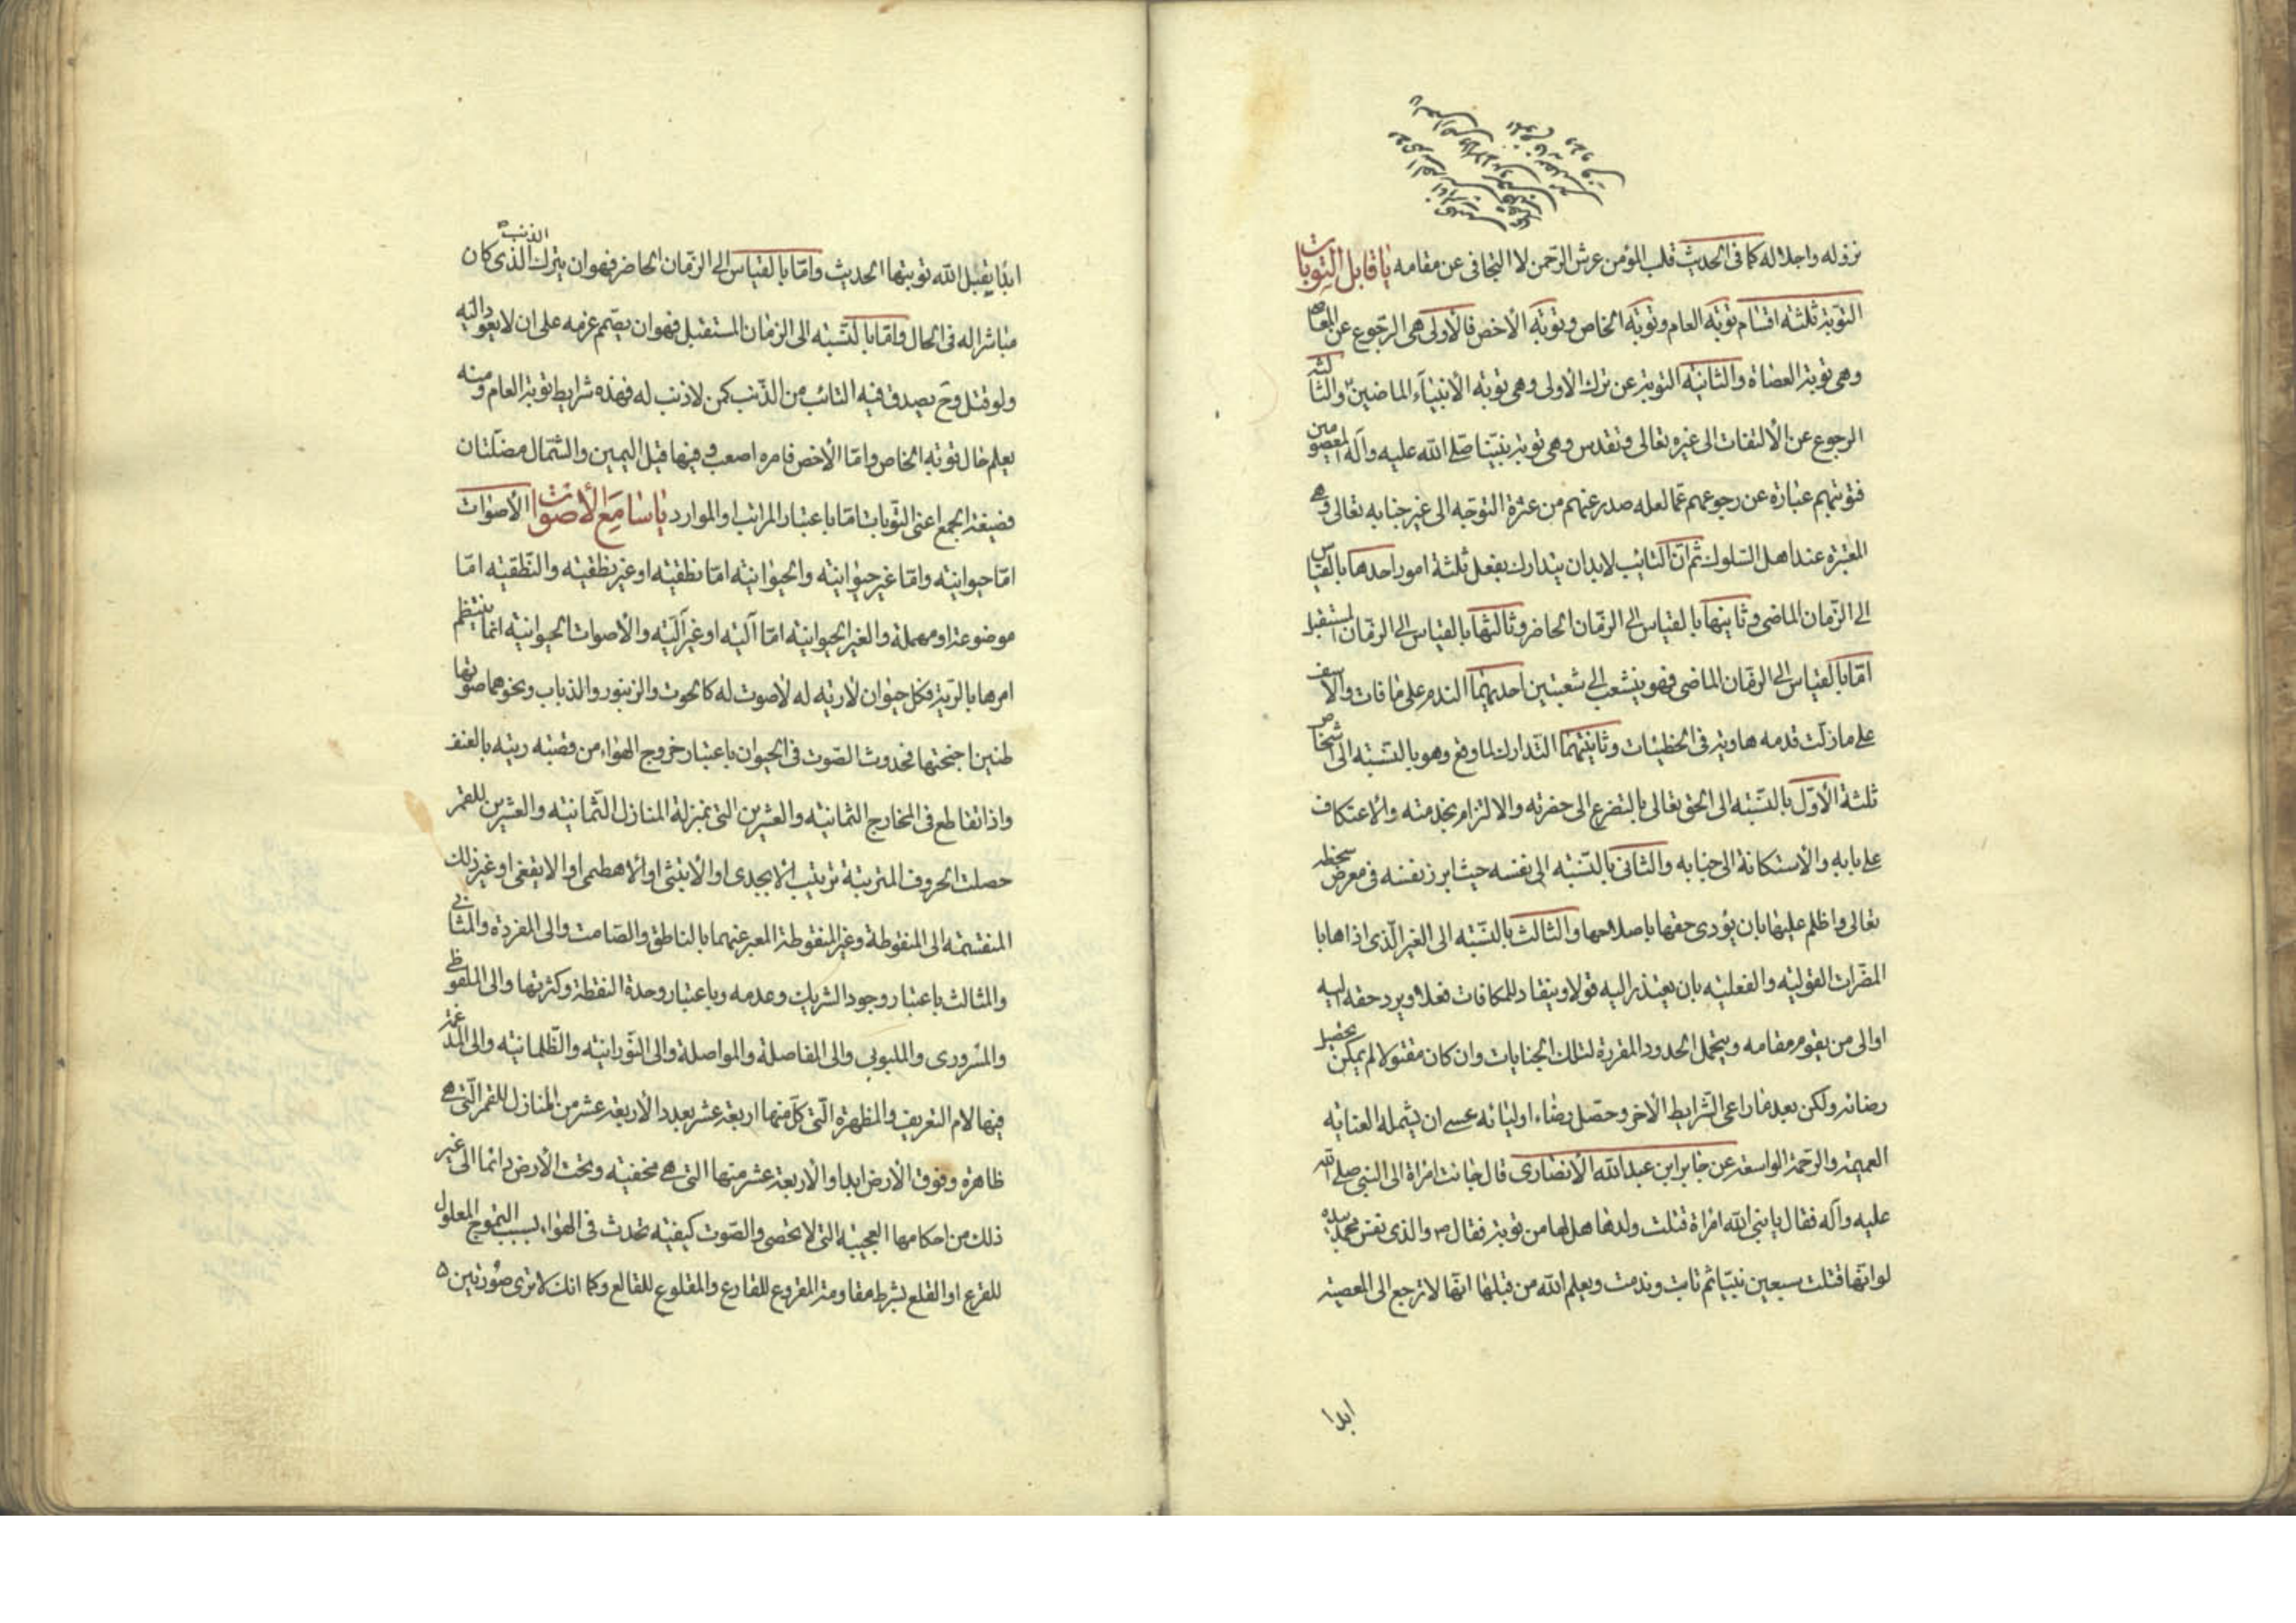 نزوله واجلاله كما فى الحديث قلب المؤمن عرش الرّحمن لا التجافى عن مقامه يا قابل التّوبات
التّوبة ثلثة اقسام توبة العام وتوبة الخاص وتوبة الأخص فالأولى هى الرّجوع عن المعاصى
وهى توبة العصاة والثانية التوبة عن ترك الأولى وهى توبة الأنبيآء الماضين والثالثة
الرجوع عن الألتفات الى غيره تعالى وتقدس وهى توبة نبيّنا صلّى الله عليه وآله المعصومين
فتوبتهم عبارة عن رجوعهم عمّا لعله صدر عنهم من عثرة التوجّه الى غير جنابه تعالى وهى
المعتبرة عند اهل السّلوك ثمّ انّ التائب لابد ان يتدارك بفعل ثلثة امور احدها بالقياس
الى الزّمان الماضى وثانيها بالقياس الى الزّمان الحاضر وثالثها بالقياس الى الزمّان المستقبل
امّا بالقياس الى الزمّان الماضى فهو ينشعب الى شعبتين احديهما الندم على ما فات والأسف
على ما زلّت قدمه هاوية فى الخطيئات وثانيتهما التّدارك لما وقع وهو بالنّسبة الى اشخاص
ثلثة الأوّل بالنّسبة الى الحق تعالى بالتضرع الى حضرته والالتزام بخدمته والأعتكاف
على بابه والأستكانة الى جنابه والثانى بالنّسبة الى نفسه حيث ابرز نفسه فى معرض سخطه
تعالى واظلم عليها بان يؤدى حقها باصلاحها والثالث بالنسّبة الى الغير الّذى اذاها با
المضّرات القولية والفعلية بان يعتذر اليه قولا وينقاد للمكافات فعلا ويرد حقه اليه
اوالى من يقوم مقامه ويتحمل الحدود المقررة لتلك الجنايات وان كان مقتولا لم يمكن تحصيل
رضائه ولكن بعد ما راعى الشّرايط الأخر وحصّل رضاء اوليائه عسى ان يشمله العناية
العميمة والرحمة الواسعة عن جابر ابن عبد الله الأنصارى قال جائت امرأة الى النبى صلى الله
عليه وآله فقال يا نبى الله امراة قتلت ولدها هل لها من توبة فقال ص والذى نفس محمد بيده
لو انّها قتلت سبعين نبيّا ثم تابت وندمت ويعلم الله من قبلها انّها لا ترجع الى المعصية
ابدا
ابدًا يقبل الله توبتها الحديث وامّا بالقياس الى الزّمان الحاضر فهو ان يترك الذنب الذى كان
مباشرا له فى الحال وامّا بالنّسبة الى الزمان المستقبل فهو ان يصّمم عزمه على ان لا يعود اليه
ولو قتل وح يصدق فيه التائب من الذّنب كمن لا ذنب له فهذه شرايط توبة العام ومنه
يعلم حال توبة الخاص وامّا الأخص فامره اصعب وفيها قيل اليمين والشّمال مضلّتان
فصيغة الجمع اعنى التّوبات امّا باعتبار المراتب او الموارد يا سامع الأصوات الأصوات
امّا حيوانية وامّا غير حيوانية والحيوانية امّا نطقية او غير نطقية والنّطقية امّا
موضوعة او مهملة والغير الحيوانية امّا آلية او غير آليّة والأصوات الحيوانية انما ينتظم
امرها بالرّية فكل حيوان لا رية له لا صوت له كالحوت والزنبور والذباب ونحوهما صوتها
طنين اجنحتها فحدوث الصّوت فى الحيوان باعتبار خروج الهواء من قصبة ريته بالعنف
واذا تقاطع فى المخارج الثمانية والعشرين التى بمنزلة المنازل الثّمانية والعشرين للقمر
حصلت الحروف المترتبة ترتيب الأبجدى او الأبتثى او الأهطمى او الايقغى او غير ذلك
المنقسمة الى المنقوطة وغير المنقوطة المعبر عنهما بالناطق والصّامت والى المفردة والمثانى
والمثالث باعتبار وجود الشريك وعدمه وباعتبار وحدة النقطة وكثرتها والى الملفوظى
والمسرورى والملبوبى والى المفاصلة والمواصلة والى النّورانية والظّلمانية والى المدغم
فيها لام التعريف والمظهرة الّتى كلّ منها اربعة عشر بعدد الأربعة عشر من المنازل للقمر الّتى هى
ظاهرة وفوق الأرض ابدا والأربعة عشر منها التى هى مخفية وتحت الأرض دائما الى غير
ذلك من احكامها العجيبة التى لا تحصى والصّوت كيفيّة تحدث فى الهواء بسبب التموج المعلول
للقرع او القلع بشرط مقاومة المقروع للقارع والمقلوع للقالع وكما انك لا ترى صورتين